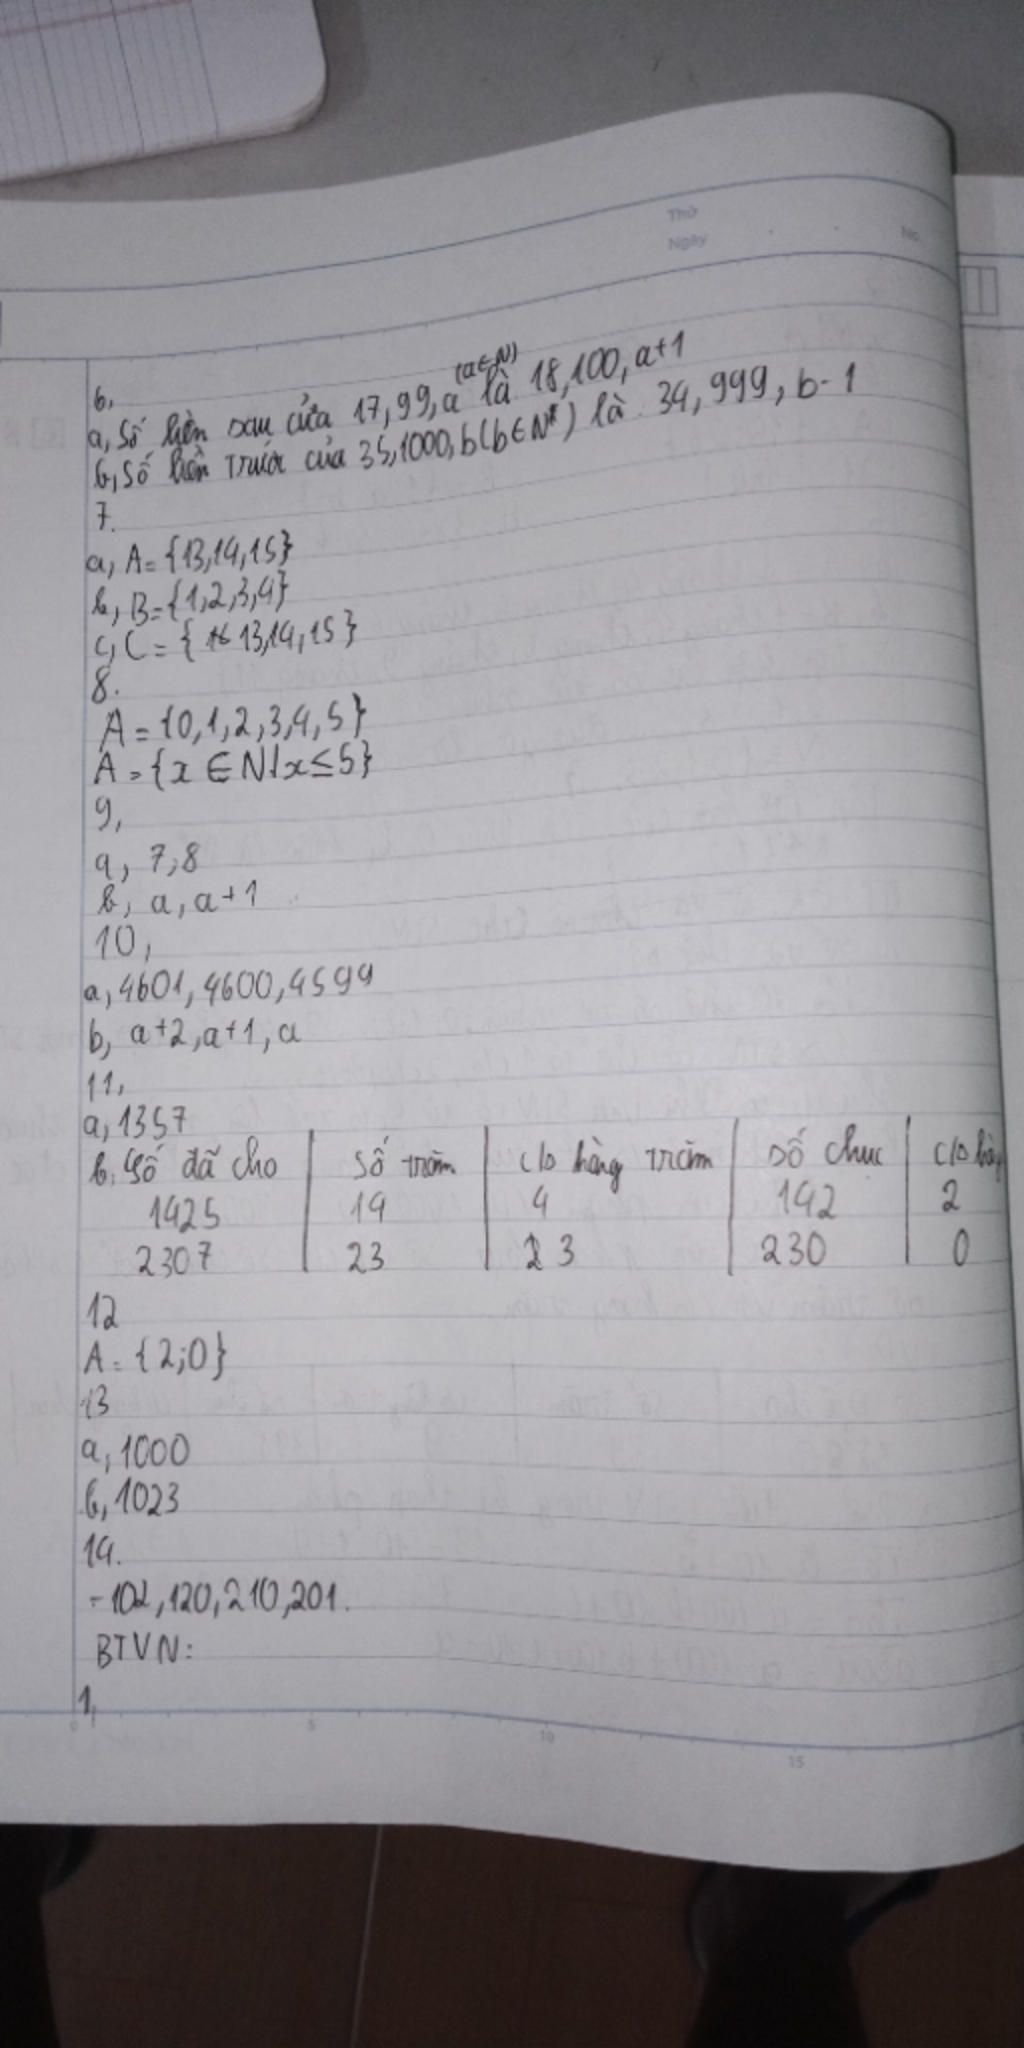 Thứ
Ngày
No.
6,
(a∈N)
a, Số liền sau của 17,99,a là 18,100,a+1
b, Số liền trước của 35,1000,b(b∈N*) là 34,999,b-1
7.
a, A={13,14,15}
b, B={1,2,3,4}
c, C={ 13,14,15}
8.
A={0,1,2,3,4,5}
A={x∈N|x≤5}
9,
a, 7,8
b, a,a+1
10,
a,4601,4600,4599
b, a+2,a+1,a
11,
a,1357
b, Số đã cho | số trăm | c/s hàng trăm | số chục | c/s hàng
1425 | 14 | 4 | 142 | 2
2307 | 23 | 3 | 230 | 0
12
A={2;0}
13
a,1000
b,1023
14.
-102,120,210,201.
BTVN:
1,
0 5 10 15